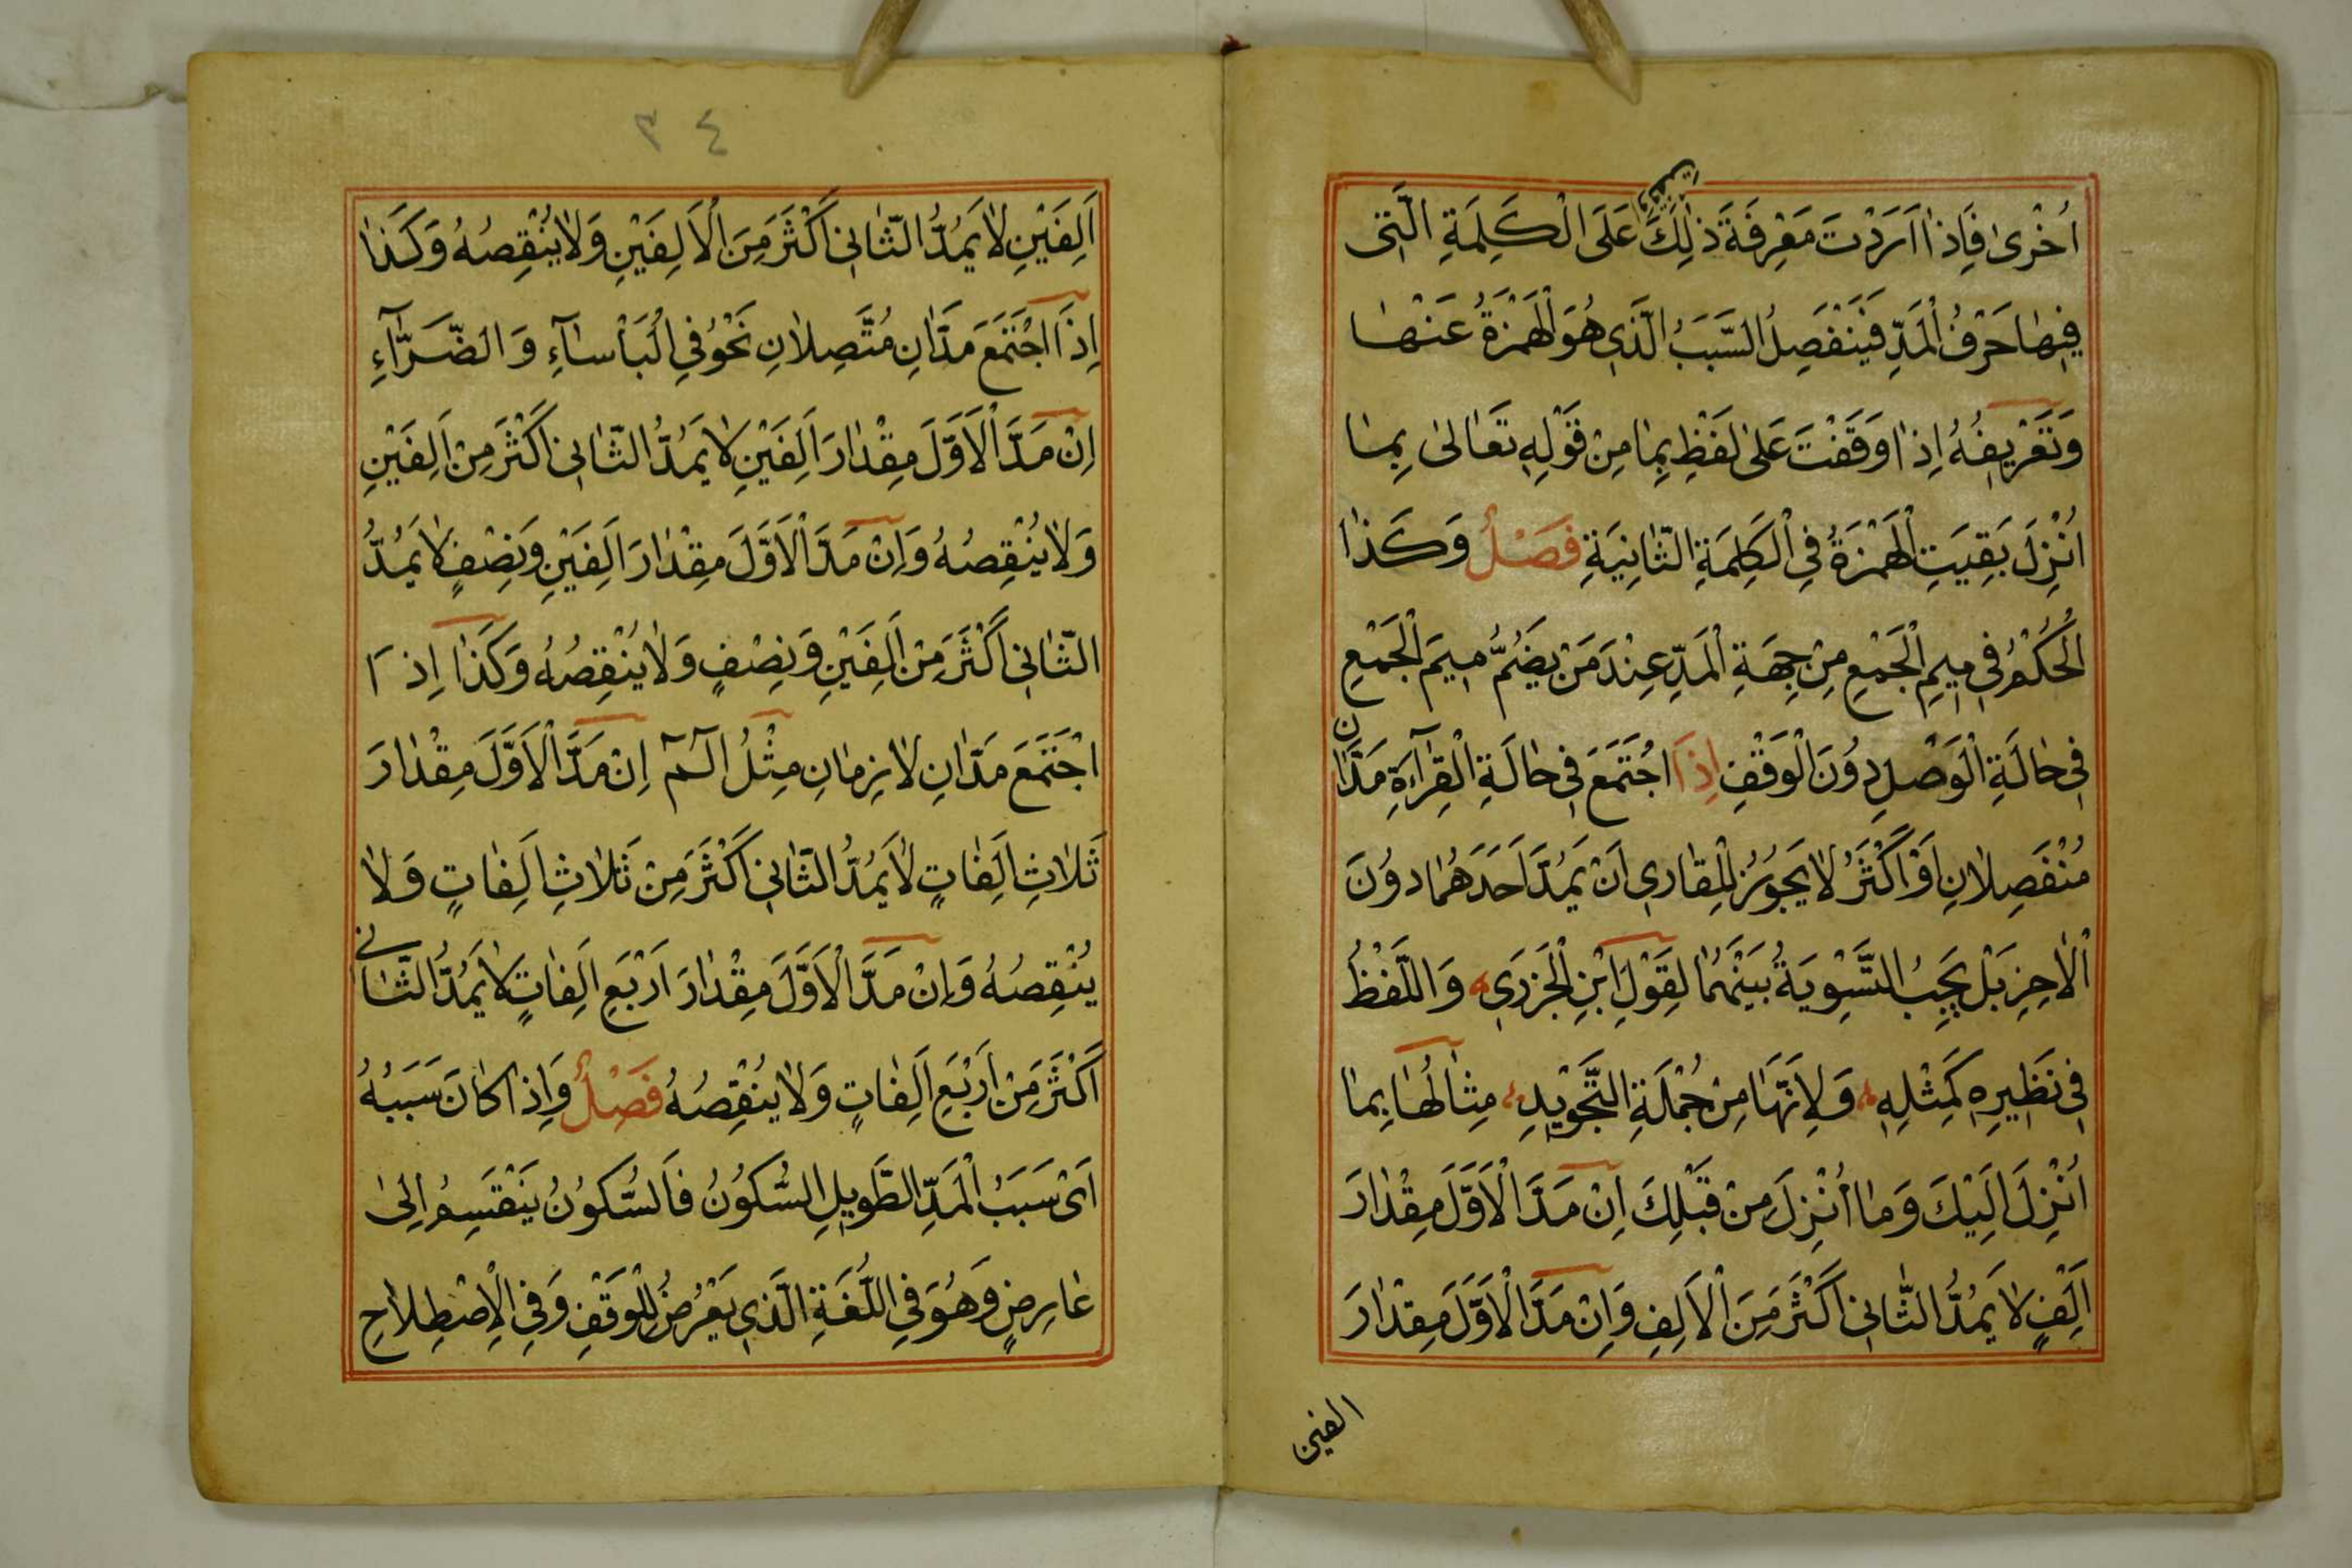 اُخْرىٰ فَاِذٰا اَرَدْتَ مَعْرِفَةَ ذٰلِكَ عَلَى الْكَلِمَةِ الَّتِى
فِيهٰا حَرْفُ الْمَدِّ فَيَنْفَصِلُ السَّبَبُ الَّذِى هُوَ الْهَمْزَةُ عَنْهٰا
وَتَعْرِيفُهُ اِذٰا وَقَفْتَ عَلىٰ لَفْظِ بِمٰا مِنْ قَوْلِهِ تَعٰالىٰ بِمٰا
اُنْزِلَ بَقِيَتِ الْهَمْزَةُ فِى الْكَلِمَةِ الثّٰانِيَةِ فَصْلٌ وَكَذٰا
الْحُكْمُ فِى مِيمِ الْجَمْعِ مِنْ جِهَةِ الْمَدِّ عِنْدَ مَنْ يَضُمُّ مِيمَ الْجَمْعِ
فِى حٰالَةِ الْوَصْلِ دُونَ الْوَقْفِ اِذَا اجْتَمَعَ فِى حٰالَةِ الْقِرٰآءَةِ مَدّٰانِ
مُنْفَصِلٰانِ اَوْ اَكْثَرُ لٰا يَجُوزُ لِلْقٰارِى اَنْ يَمُدَّ اَحَدَهُمٰا دُونَ
الْاٰخِرِ بَلْ يَجِبُ التَّسْوِيَةُ بَيْنَهُمٰا لِقَوْلِ ابْنِ الْجَزَرِى وَاللَّفْظُ
فِى نَظِيرِهِ كَمِثْلِهِ وَلِاَنَّهٰا مِنْ جُمْلَةِ التَّجْوِيدِ مِثٰالُهٰا بِمٰا
اُنْزِلَ اِلَيْكَ وَمٰا اُنْزِلَ مِنْ قَبْلِكَ اِنْ مَدَّ الْاَوَّلَ مِقْدٰارَ
اَلِفٍ لٰا يَمُدُّ الثّٰانِى اَكْثَرَ مِنَ الْاَلِفِ وَاِنْ مَدَّ الْاَوَّلَ مِقْدٰارَ
الفين
٣٤
اَلِفَيْنِ لٰا يَمُدُّ الثّٰانِى اَكْثَرَ مِنَ الْاَلِفَيْنِ وَلٰا يُنْقِصُهُ وَكَذٰا
اِذَا اجْتَمَعَ مَدّٰانِ مُتَّصِلٰانِ نَحْوُ فِى الْبَأْسٰآءِ وَالضَّرّٰآءِ
اِنْ مَدَّ الْاَوَّلَ مِقْدٰارَ اَلِفَيْنِ لٰا يَمُدُّ الثّٰانِى اَكْثَرَ مِنْ اَلِفَيْنِ
وَلٰا يُنْقِصُهُ وَاِنْ مَدَّ الْاَوَّلَ مِقْدٰارَ اَلِفَيْنِ وَنِصْفٍ لٰا يَمُدُّ
الثّٰانِى اَكْثَرَ مِنْ اَلِفَيْنِ وَنِصْفٍ وَلٰا يُنْقِصُهُ وَكَذٰا اِذَا
اجْتَمَعَ مَدّٰانِ لٰازِمٰانِ مِثْلُ الٓمٓ اِنْ مَدَّ الْاَوَّلَ مِقْدٰارَ
ثَلٰاثِ اَلِفٰاتٍ لٰا يَمُدُّ الثّٰانِى اَكْثَرَ مِنْ ثَلٰاثِ اَلِفٰاتٍ وَلٰا
يُنْقِصُهُ وَاِنْ مَدَّ الْاَوَّلَ مِقْدٰارَ اَرْبَعِ اَلِفٰاتٍ لٰا يَمُدُّ الثّٰانى
اَكْثَرَ مِنْ اَرْبَعِ اَلِفٰاتٍ وَلٰا يُنْقِصُهُ فَصْلٌ وَاِذٰا كٰانَ سَبَبُهُ
اَىْ سَبَبُ الْمَدِّ الطَّوِيلِ السُّكُونُ فَالسُّكُونُ يَنْقَسِمُ اِلىٰ
عٰارِضٍ وَهُوَ فِى اللُّغَةِ الَّذِى يَعْرُضُ لِلْوَقْفِ وَفِى الْاِصْطِلٰاحِ